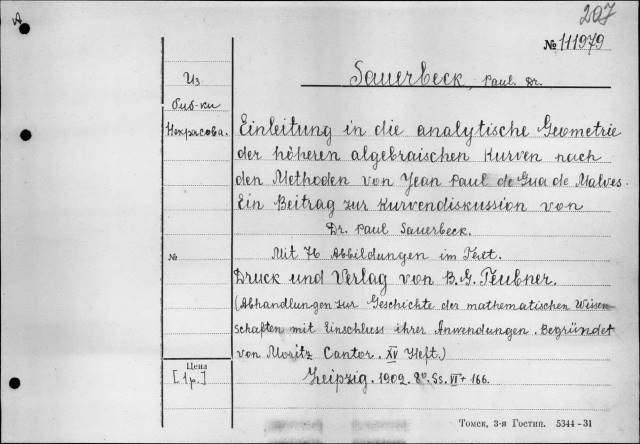 A
207
№ 111979
Sauerbeck, Paul Dr.
Из
биб-ки
Некрасова.
Einleitung in die analytische Geometrie
der höheren algebraischen Kurven nach
den Methoden von Jean Paul de Gua de Malves.
Ein Beitrag zur Kurvendiskussion von
Dr. Paul Sauerbeck.
Mit 76 Abbildungen im Text.
№
Druck und Verlag von B. G. Teubner.
(Abhandlungen zur Geschichte der mathematischen Wissen-
schaften mit Einschluss ihrer Anwendungen. Begründet
von Moritz Cantor. XV Heft.)
Цена
[1 р.]
Leipzig. 1902. 8°. Ss. VI + 166.
Томск, 3-я Гостип. 5344-31